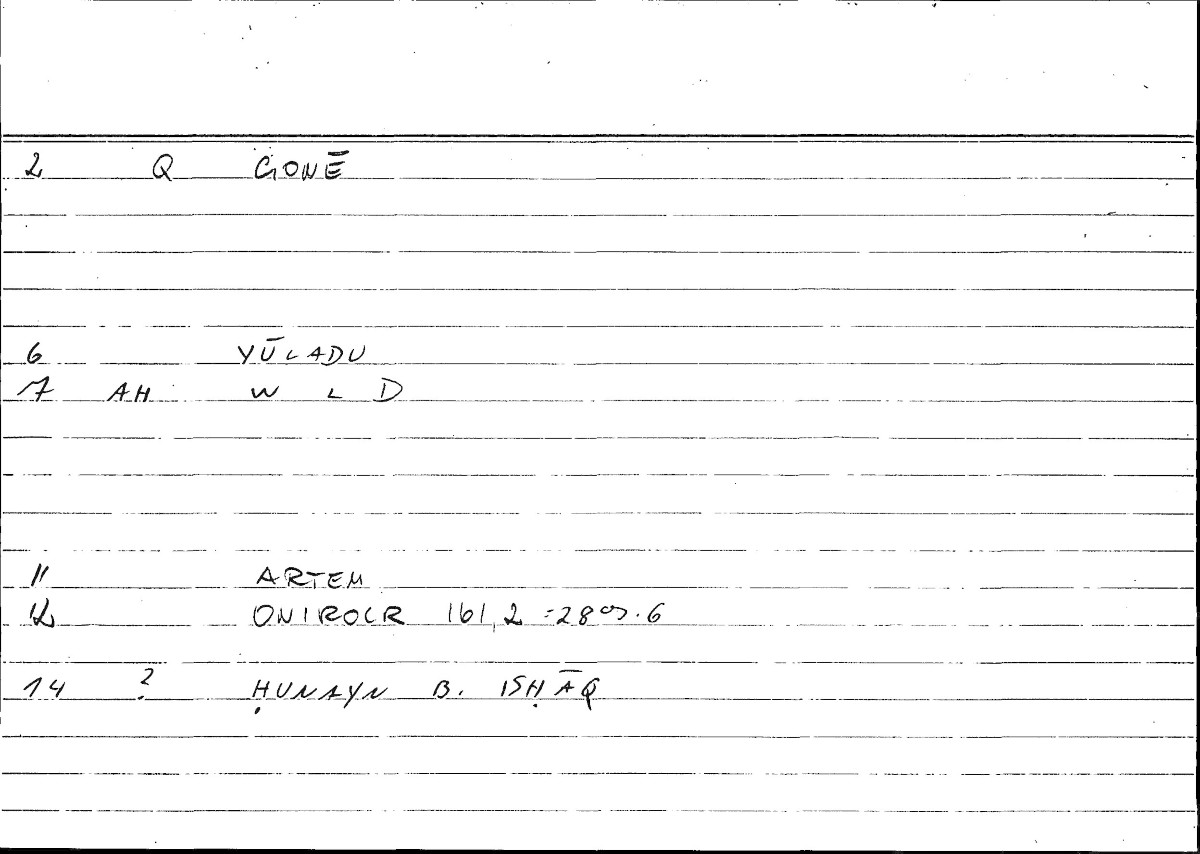 2 Q GONĒ
6 YŪLADU
7 AH W L D
11 ARTEM
12 ONIROCR 161,2 =
14 ? ḤUNAYN B. ISḤĀQ